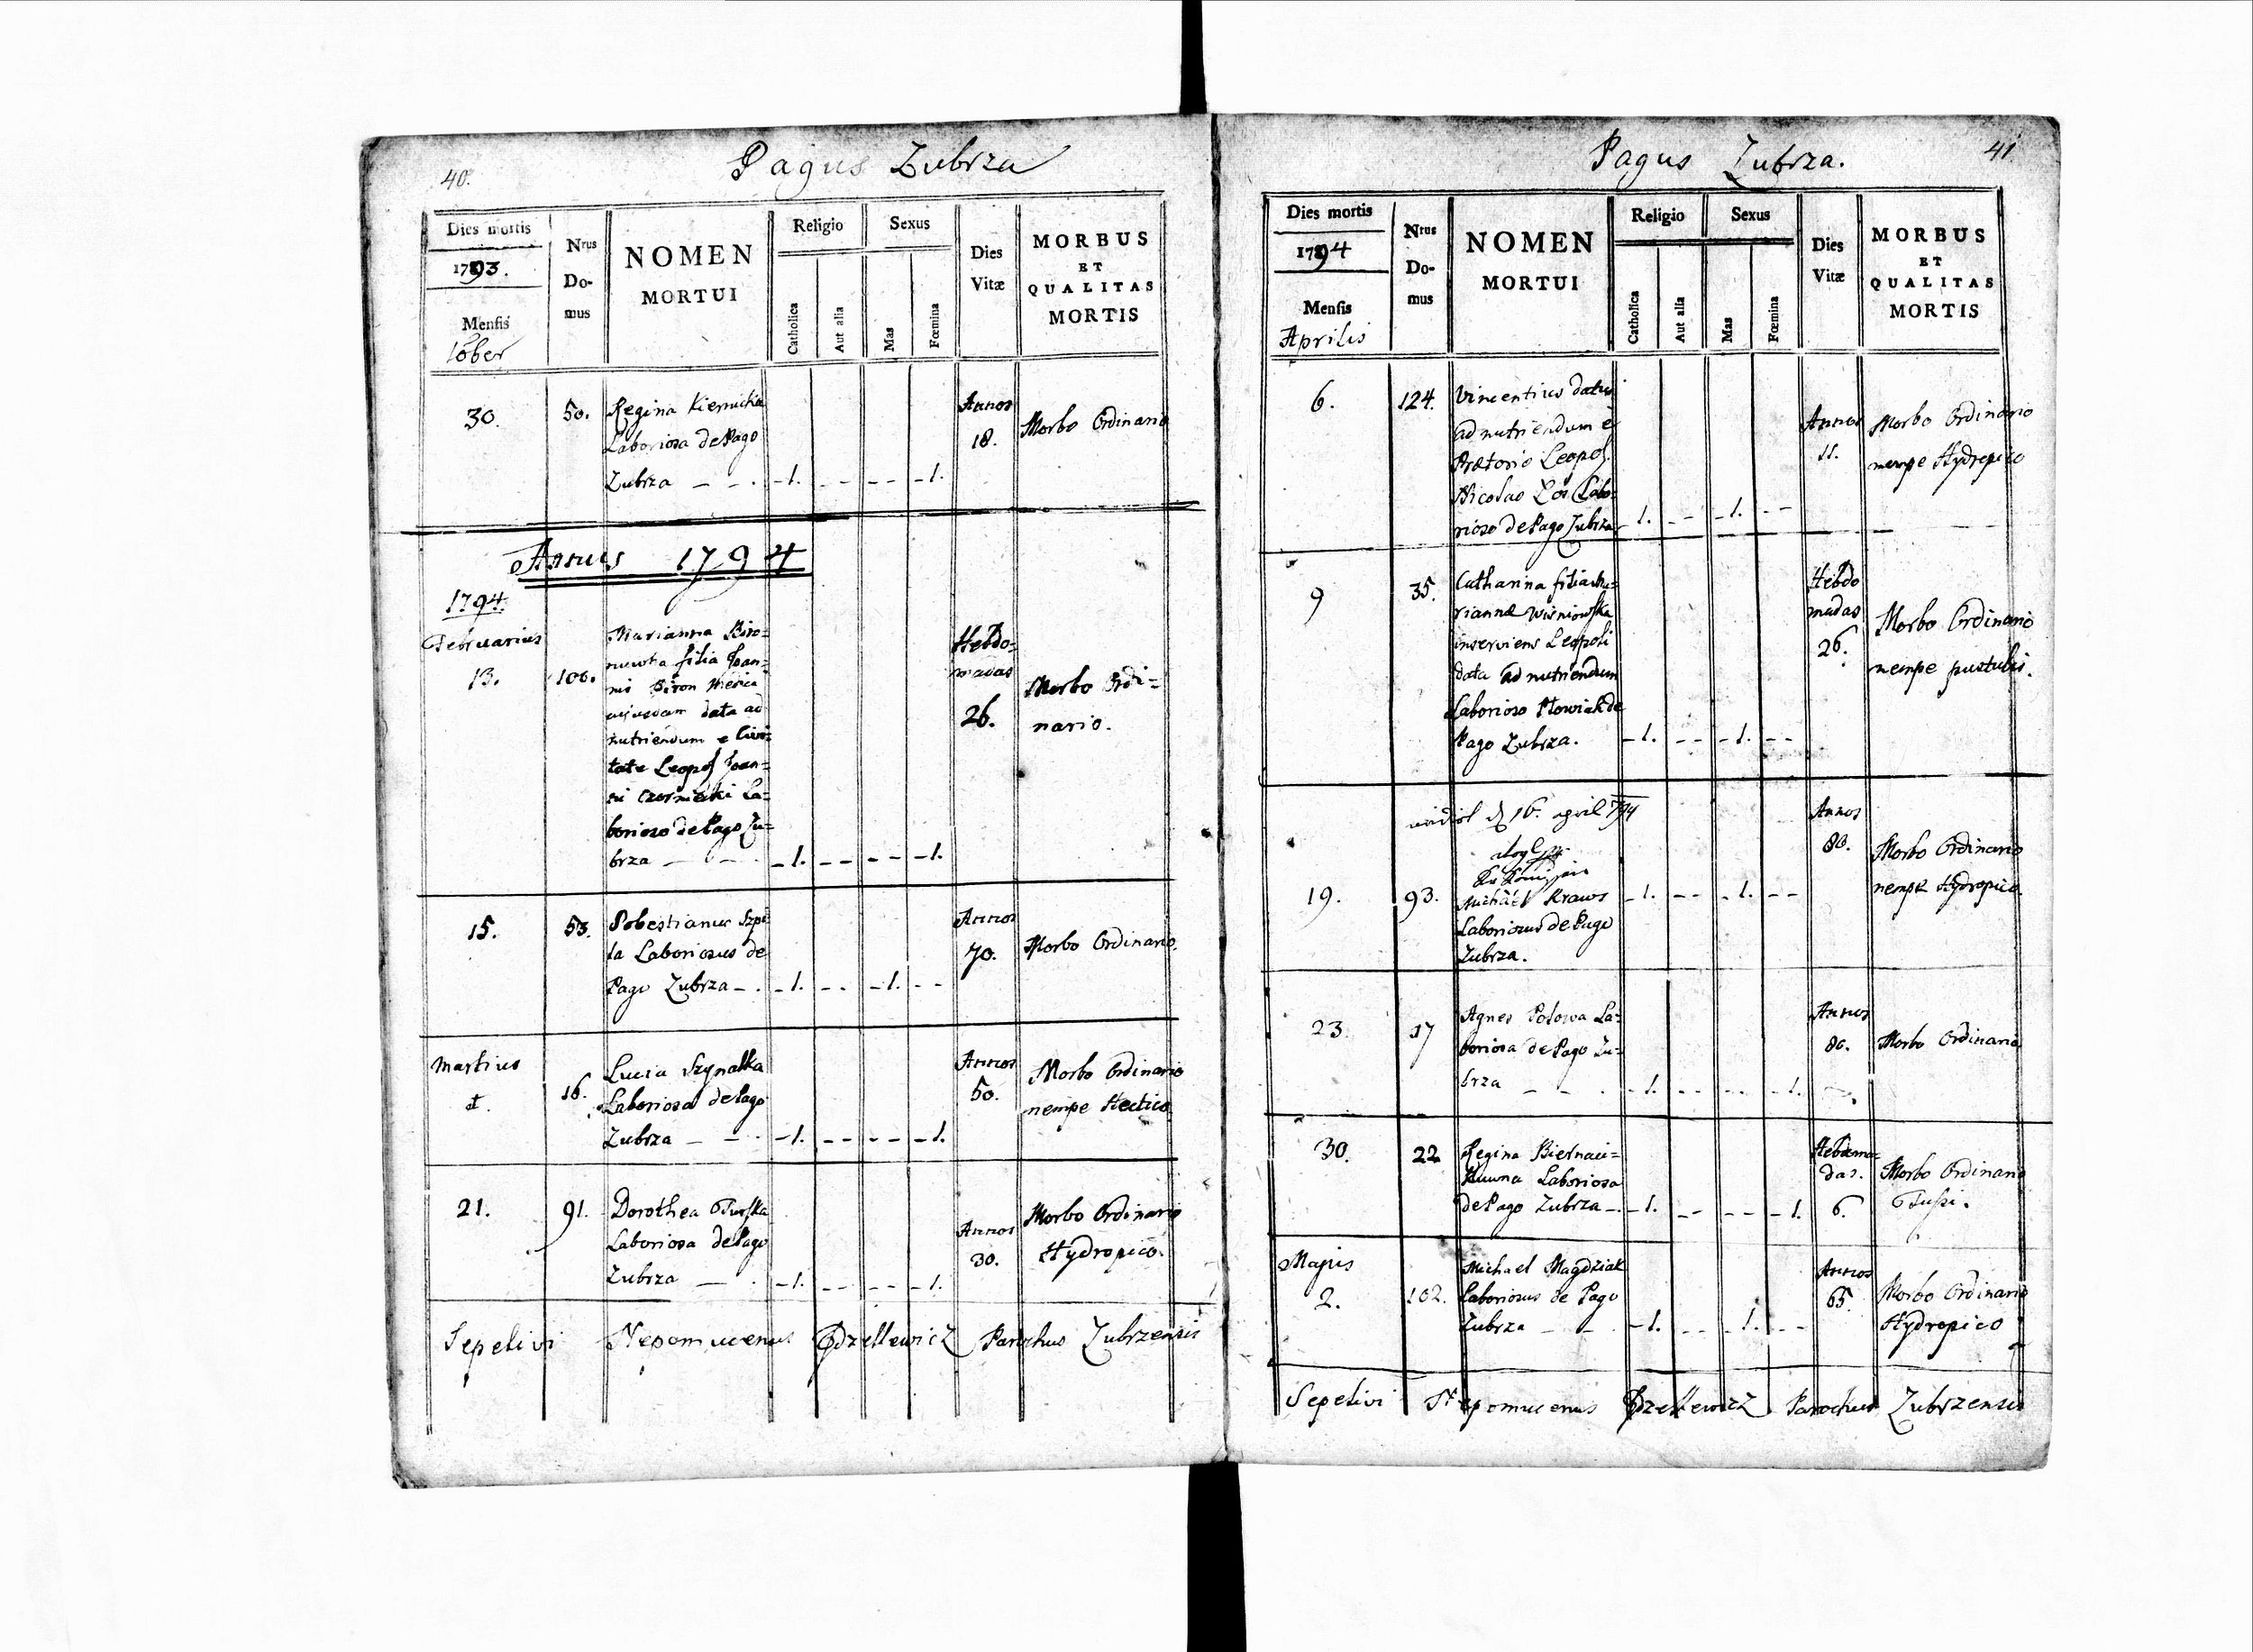 40.
Pagus Zubrza
Dies mortis
1793.
Mensis
10ber
Nrus
Do-
mus
NOMEN
MORTUI
Religio
Catholica
Aut alia
Sexus
Mas
Fœmina
Dies
Vitæ
MORBUS
ET
QUALITAS
MORTIS
30.
50.
Regina
Laboriosa de Pago
Zubrza - - . - 1. - - - - - 1.
Annos
18.
Morbo Ordinario
Annus 1794
1794.
Februarius
13.
100.
Marianna Biro=
nuwna filia Joan=
nis Biron
cujusdam data ad
nutriendum e Civi=
tate Leopol Joan=
ni Czerniecki La=
borioso de Pago Zu=
brza - - - 1. - - - - - 1.
Hebdo=
madas
26.
Morbo Ordi=
nario.
15.
53.
Sobestianus Szpi
ta Laboriosus de
Pago Zubrza - . - 1. - - - 1. - -
Annos
70.
Morbo Ordinario.
Martius
16.
Lucia Szynalka
Laboriosa de Pago
Zubrza - - . - 1. - - - - - 1.
Annos
50.
Morbo Ordinario
nempe Hectico
21.
91.
Dorothea
Laboriosa de Pago
Zubrza - . - 1. - - - - - 1.
Annos
30.
Morbo Ordinario
Hydropico.
Sepelivi Nepomucenus Parochus Zubrzensis
41
Pagus Zubrza.
Dies mortis
1794
Mensis
Aprilis
Nrus
Do-
mus
NOMEN
MORTUI
Religio
Catholica
Aut alia
Sexus
Mas
Fœmina
Dies
Vitæ
MORBUS
ET
QUALITAS
MORTIS
6.
124.
Vincentius datus
ad nutriendum è
Prætorio Leopol.
Nicolao Łoś Labo=
rioso de Pago Zubrza - 1. - - - 1. - -
Annos
11.
Morbo Ordinario
nempe Hydropico
9
35.
Catharina filia Ma=
riannæ Wiśniowska
inserviens Leopoli
data ad nutriendum
Laborioso Nowiak de
Pago Zubrza. - 1. - - - 1. - -
Hebdo
madas
26.
Morbo Ordinario
nempe pustulis.
16. april 794
19.
93.
Michael Kraws
Laboriosus de Pago
Zubrza.
- 1. - - - 1. - -
Annos
80.
Morbo Ordinario
nempe Hydropico.
23.
17
Agnes Połowa La=
boriosa de Pago Zu=
brza - - . - 1. - - - - - 1.
Annos
80.
Morbo Ordinario
30.
22
Regina Biernaci=
kuwna Laboriosa
de Pago Zubrza - . - 1. - - - - - 1.
Hebdoma=
das.
6.
Morbo Ordinario
Tussi.
Majis
2.
102.
Michael Magdziak
Laboriosus de Pago
Zubrza - - . - 1. - - - 1. - -
Annos
65.
Morbo Ordinario
Hydropico
Sepelivi Nepomucenus Parochus Zubrzensis